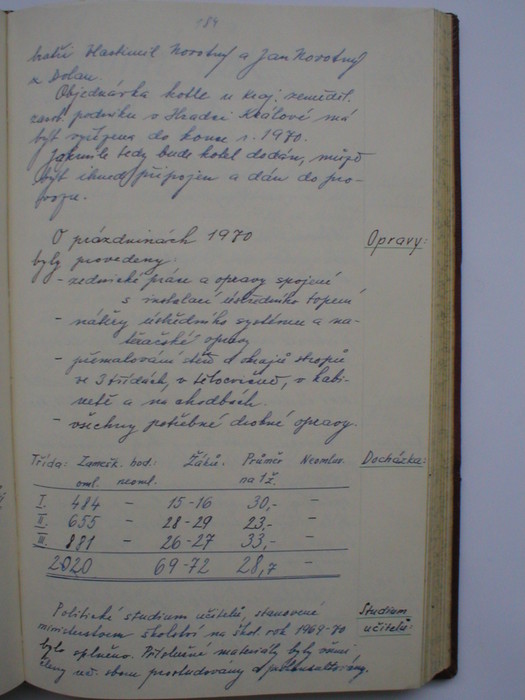 184
bratři Vlastimil Novotný a Jan Novotný
z Dolan.
Objednávka kotle u kraj. zeměděl.
zásob. podniku v Hradci Králové má
být vyřízena do konce r. 1970.
Jakmile tedy bude kotel dodán, může
být ihned připojen a dán do pro-
vozu.
O prázdninách 1970
Opravy:
byly provedeny:
- zednické práce a opravy spojené
s instalací ústředního topení
- nátěry ústředního systému a na-
těračské opravy
- přemalování stěn a okrajů stropů
ve 3 třídách, v tělocvičně, v kabi-
netě a na chodbách.
- všechny potřebné drobné opravy.
Třída: Zamešk. hod: Žáků: Průměr Neomluv. Docházka:
oml. neoml. na 1 ž.
I. 484 - 15-16 30,- -
II. 655 - 28-29 23,- -
III. 881 - 26-27 33,- -
2020 69-72 28,7 -
Politické studium učitelů, stanovené
Studium
ministerstvem školství na škol. rok 1969-70
učitelů:
bylo splněno. Příslušné materiály byly všemi
členy uč. sboru prostudovány a